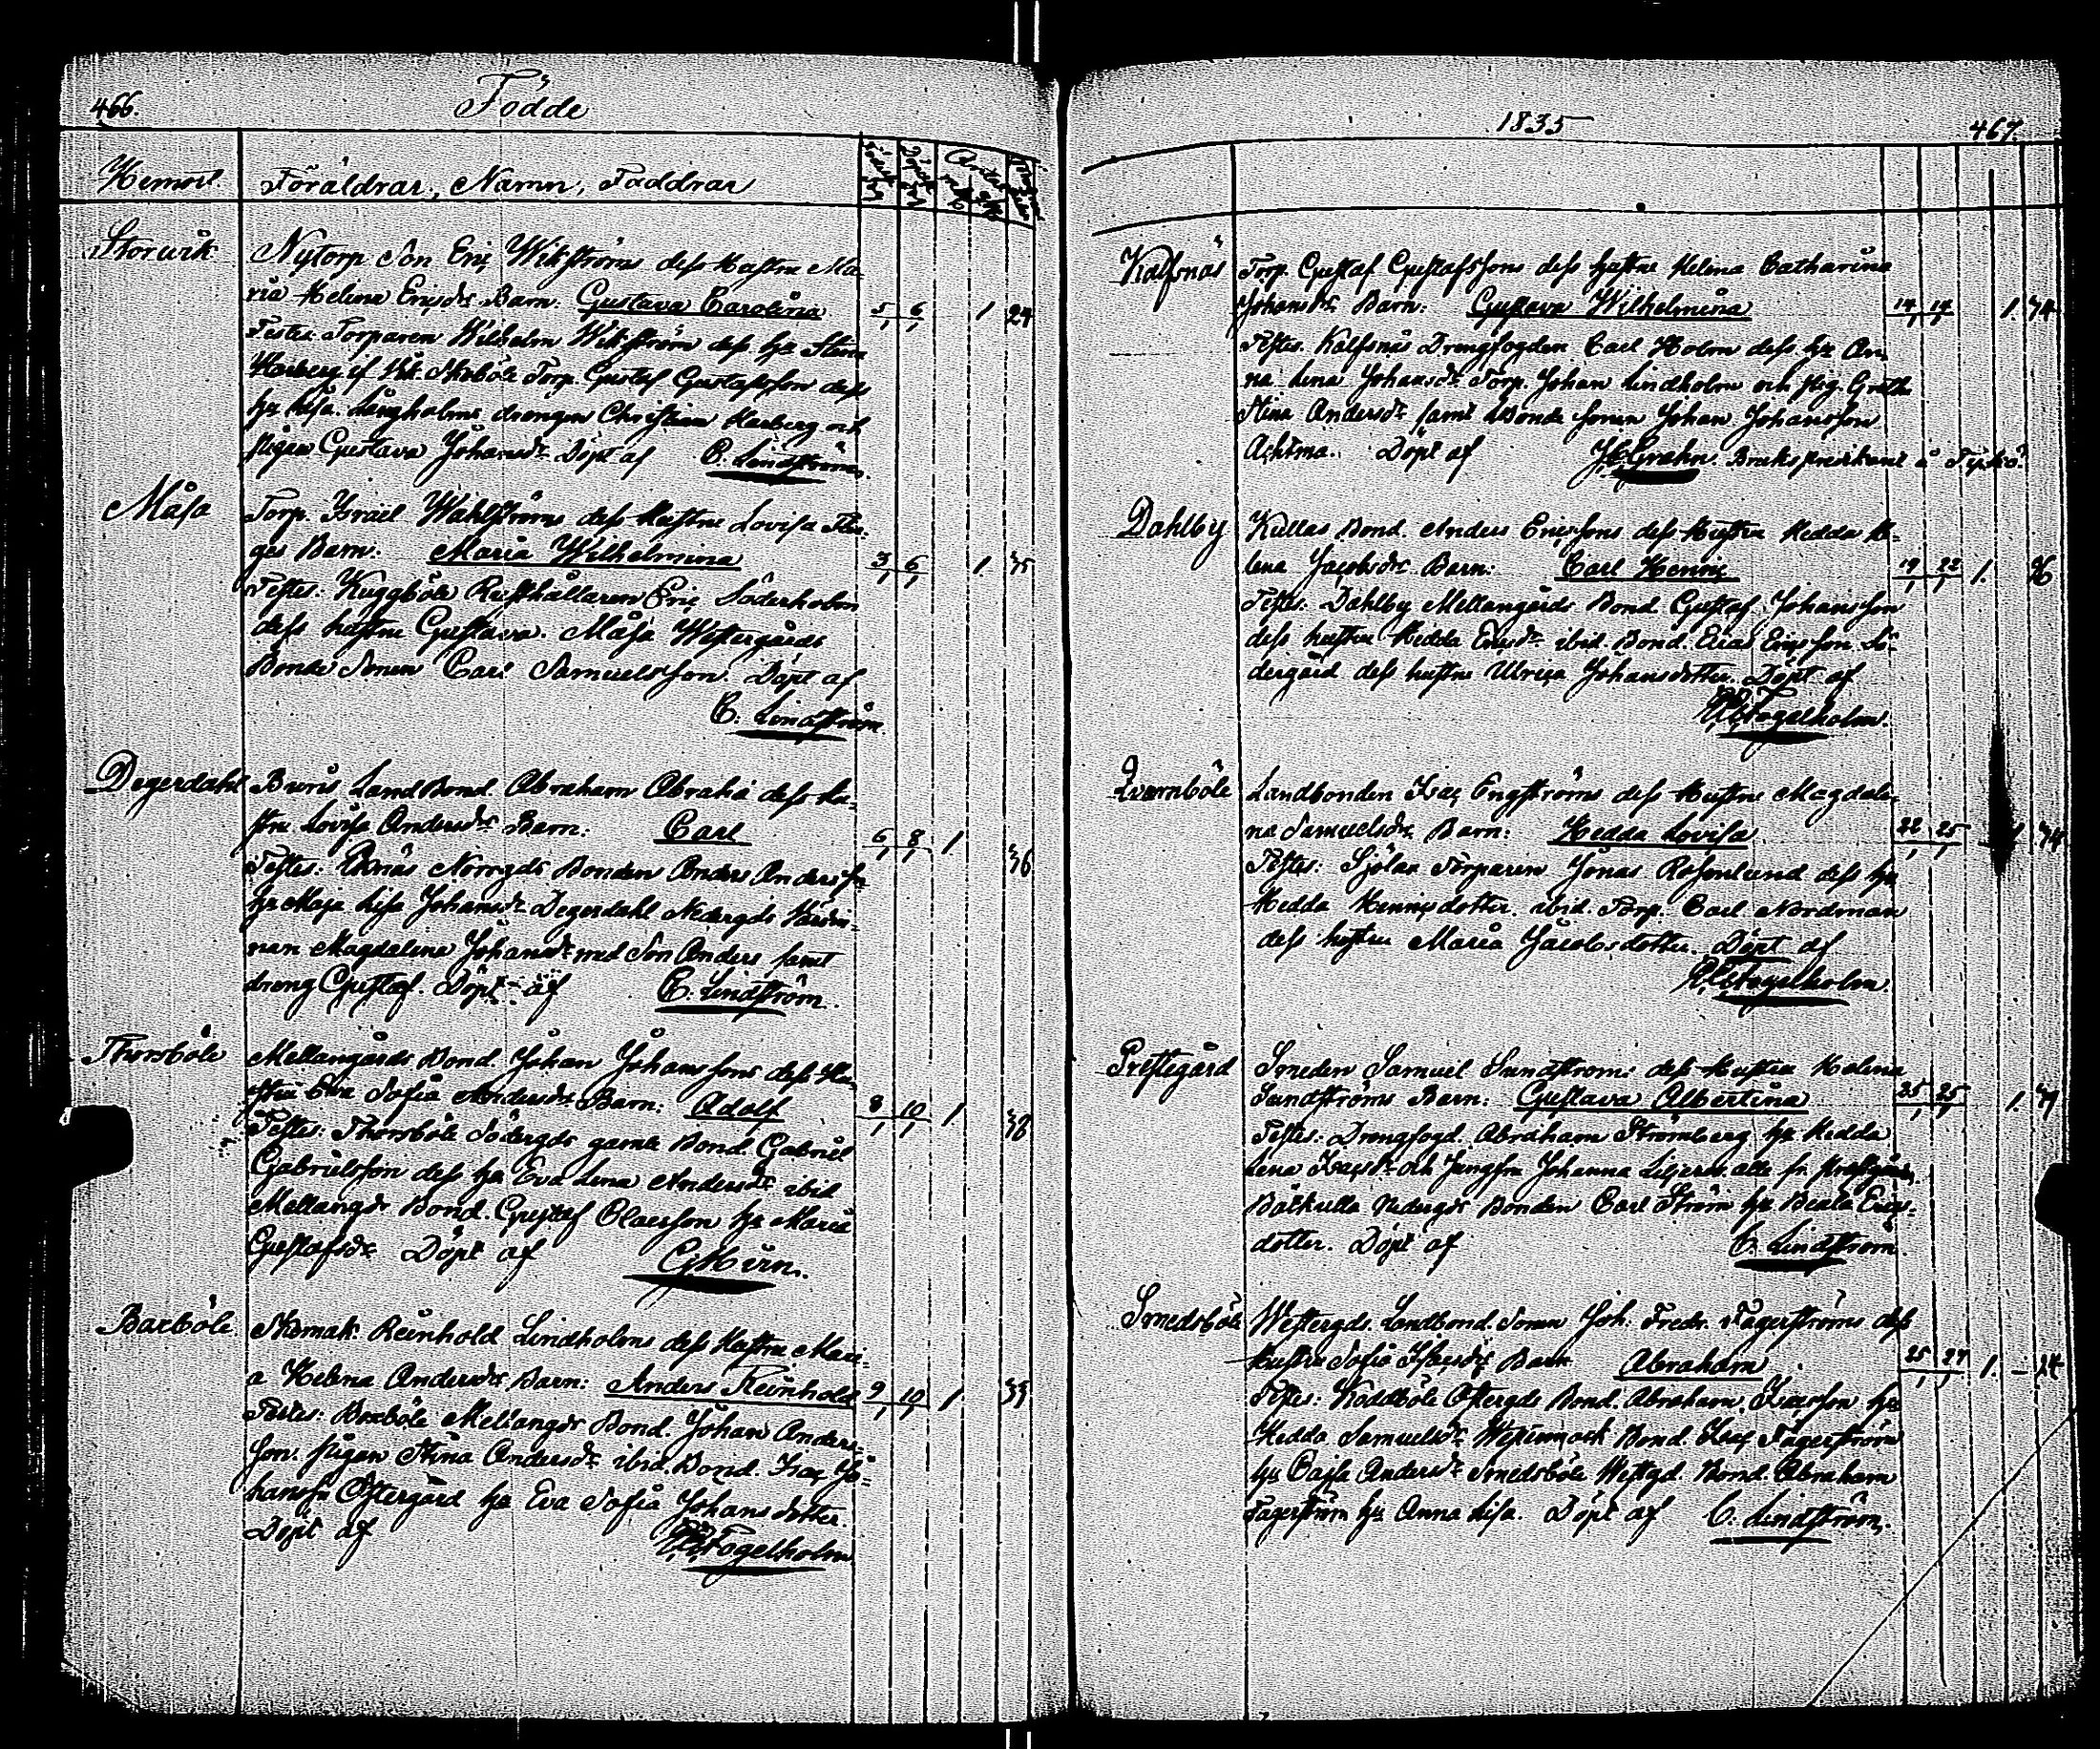 466.
Födde
Hemort. Föräldrar, Namn, Faddrar
Storwik Nytorp Son Eric Wikströms dess Hustru Ma-
ria Helena Ericsdr Barn. Gustava Carolina 5/1 6/1 1 24
Testes. Torparen Wilhelm Wikström dess hu Stina
Torp. Gustaf Gustafsson dess
hu Lisa. Långholms drengen Christian Karberg och
pigan Gustava Johansdr Döpt af C. Lindström.
Måsa Torp. Israel Wahlströms dess Hustru Lovisa
Barn. Maria Wilhelmina 3/1 6/1 1. 35
Testes: Kuggböle Rusthållaren Eric Söderholm
dess hustru Gustava. Måsa Westergårds
Bonde Sonen Carl Samuelsson. Döpt af
C. Lindström
Degerdahl Land Bond. Abraham Abrahs dess Hu-
stru Lovisa Andersdr Barn: Carl 6/1 8/1 1. 36
Testes: Norrgds Bonden Anders Anderss.
hu Maja Lisa Johansdr Degerdahl Nedergds Värdin-
nan Magdalena Johansdr med Son Anders samt
dreng Gustaf. Döpt af C. Lindström.
Thorsböle Mellangårds Bond. Johan Johanssons dess Hu-
stru Eva Sofia Andersdr Barn: Adolf 8/1 10/1 1. 38
Testes: Thorsböle Södergds gamla Bond. Gabriel
Gabrielsson dess hu Eva Lena Andersdr ibid
Mellangds Bond. Gustaf Claesson hu Maria
Gustafsdr Döpt af
Barböle Skomak. Reinhold Lindholms dess Hustru Mari-
a Helena Andersdr Barn: Anders Reinhold 9/1 10/1 1. 33
Testes: Barböle Mellangds Bond. Johan Anders-
son. pigan Stina Andersdr ibid. Bond. Isac Jo-
hanss Östergård hu Eva Sofia Johansdotter.
Döpt af Fogelholm.
1835
467.
Kalfsnäs Torp. Gustaf Gustafssons dess hustru Helena Catharina
Johansdr Barn: Gustava Wilhelmina 14/1 17/1 1. 34
Testes. Kalfsnäs Drengfogden Carl Holm dess hu An-
na Lena Johansdr Torp. Johan Lindholm och pig. Greta
Stina Andersdr samt Bonde Sonen Johan Johansson
Döpt af Grahn. Bruks predikant å Tykö.
Dahlby Kullas Bond. Anders Ericssons dess Hustru Hedda He-
lena Jacobsdr Barn: Carl Henric 19/1 22/1 1. 26
Testes: Dahlby Mellangårds Bond Gustaf Johansson
dess hustru Hedda Ericsdr ibid. Bond. Elias Ericsson Sö-
dergård dess hustru Ulrica Johansdotter. Döpt af
Fogelholm.
Qvarnböle Landbonden Isac Engströms dess Hustru Magdale-
na Samuelsdr Barn: Hedda Lovisa 22/1 25/1 1. 34
Testes: Sjölax Torparen Jonas Rosenlund dess hu
Hedda Henricsdotter. ibid. Torp. Carl Nordman
dess hustru Maria Jacobsdotter. Döpt af
Fogelholm.
Prestegård Smeden Samuel Sundströms dess Hustru Helena
Sundströms Barn: Gustava Albertina 25/1 25/1 1.
Testes: Drengfogd. Abraham Strömberg hu Hedda
Lena Isacsdr och Jungfru Johanna alla fr. Prestgård.
Båtkulla Nedergds Bonden Carl Ström hu Beata Erics-
dotter. Döpt af C. Lindström
Smedsböle Westergds Landbond. Sonen Joh: Fredr. Fagerströms dess
Hustru Sofia Isacsdr Barn Abraham 25/1 27/1 1. – 24
Testes: Koddböle Östergds Bond. Abraham Isacsson hu
Hedda Samuelsdr Bond. Isac Fagerström
hu Cajsa Andersdr Smedsböle Westgd. Bond. Abraham
Fagerström hu Anna Lisa. Döpt af C. Lindström.